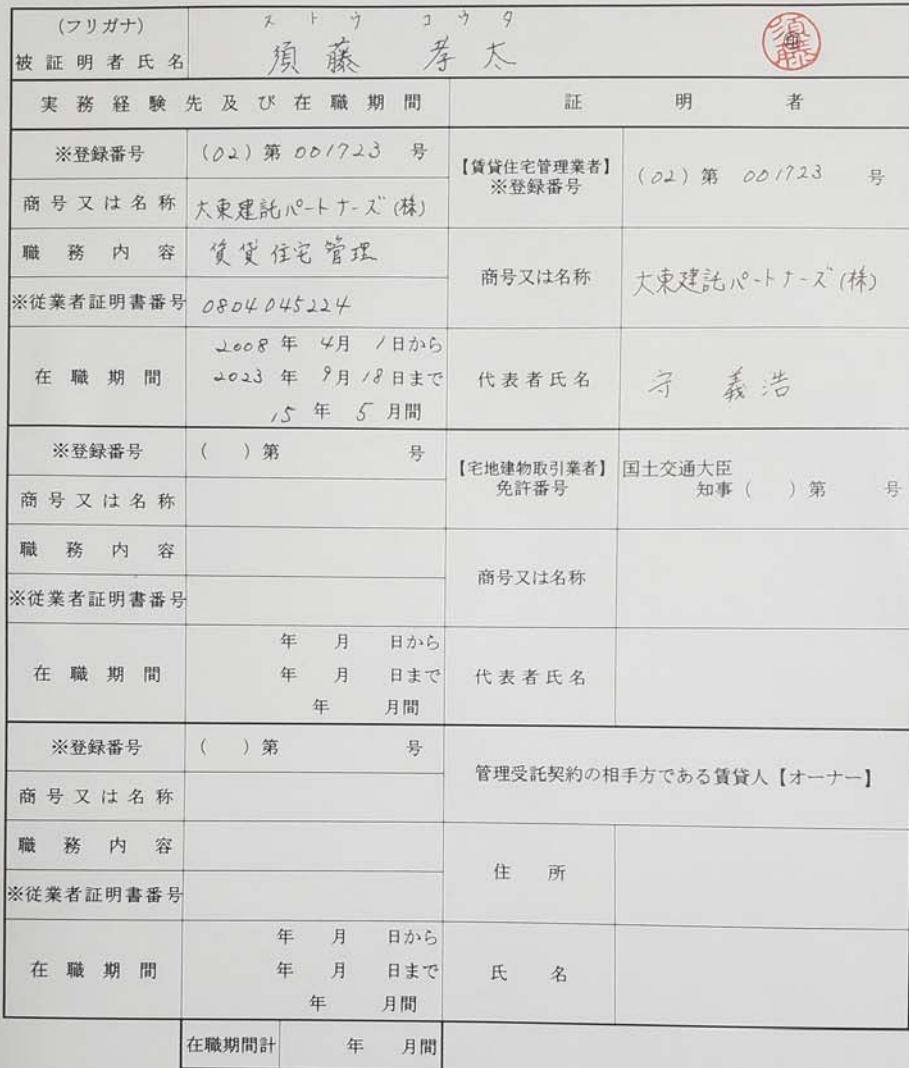 (フリガナ) ストウ コウタ
被証明者氏名 須藤 孝太 須藤 ㊞
実務経験先及び在職期間 証明者
※登録番号 (02)第 001723 号
【賃貸住宅管理業者】
※登録番号 (02)第 001723 号
商号又は名称 大東建託パートナーズ(株)
職務内容 賃貸住宅管理
商号又は名称 大東建託パートナーズ(株)
※従業者証明書番号 0804045224
在職期間 2008年 4月 1日から
2023年 9月 18日まで
15年 5月間
代表者氏名 守 義浩
※登録番号 ( )第 号
【宅地建物取引業者】
免許番号
国土交通大臣
知事( )第 号
商号又は名称
職務内容
商号又は名称
※従業者証明書番号
在職期間 年 月 日から
年 月 日まで
年 月間
代表者氏名
※登録番号 ( )第 号
管理受託契約の相手方である賃貸人【オーナー】
商号又は名称
職務内容
住所
※従業者証明書番号
在職期間 年 月 日から
年 月 日まで
年 月間
氏名
在職期間計 年 月間